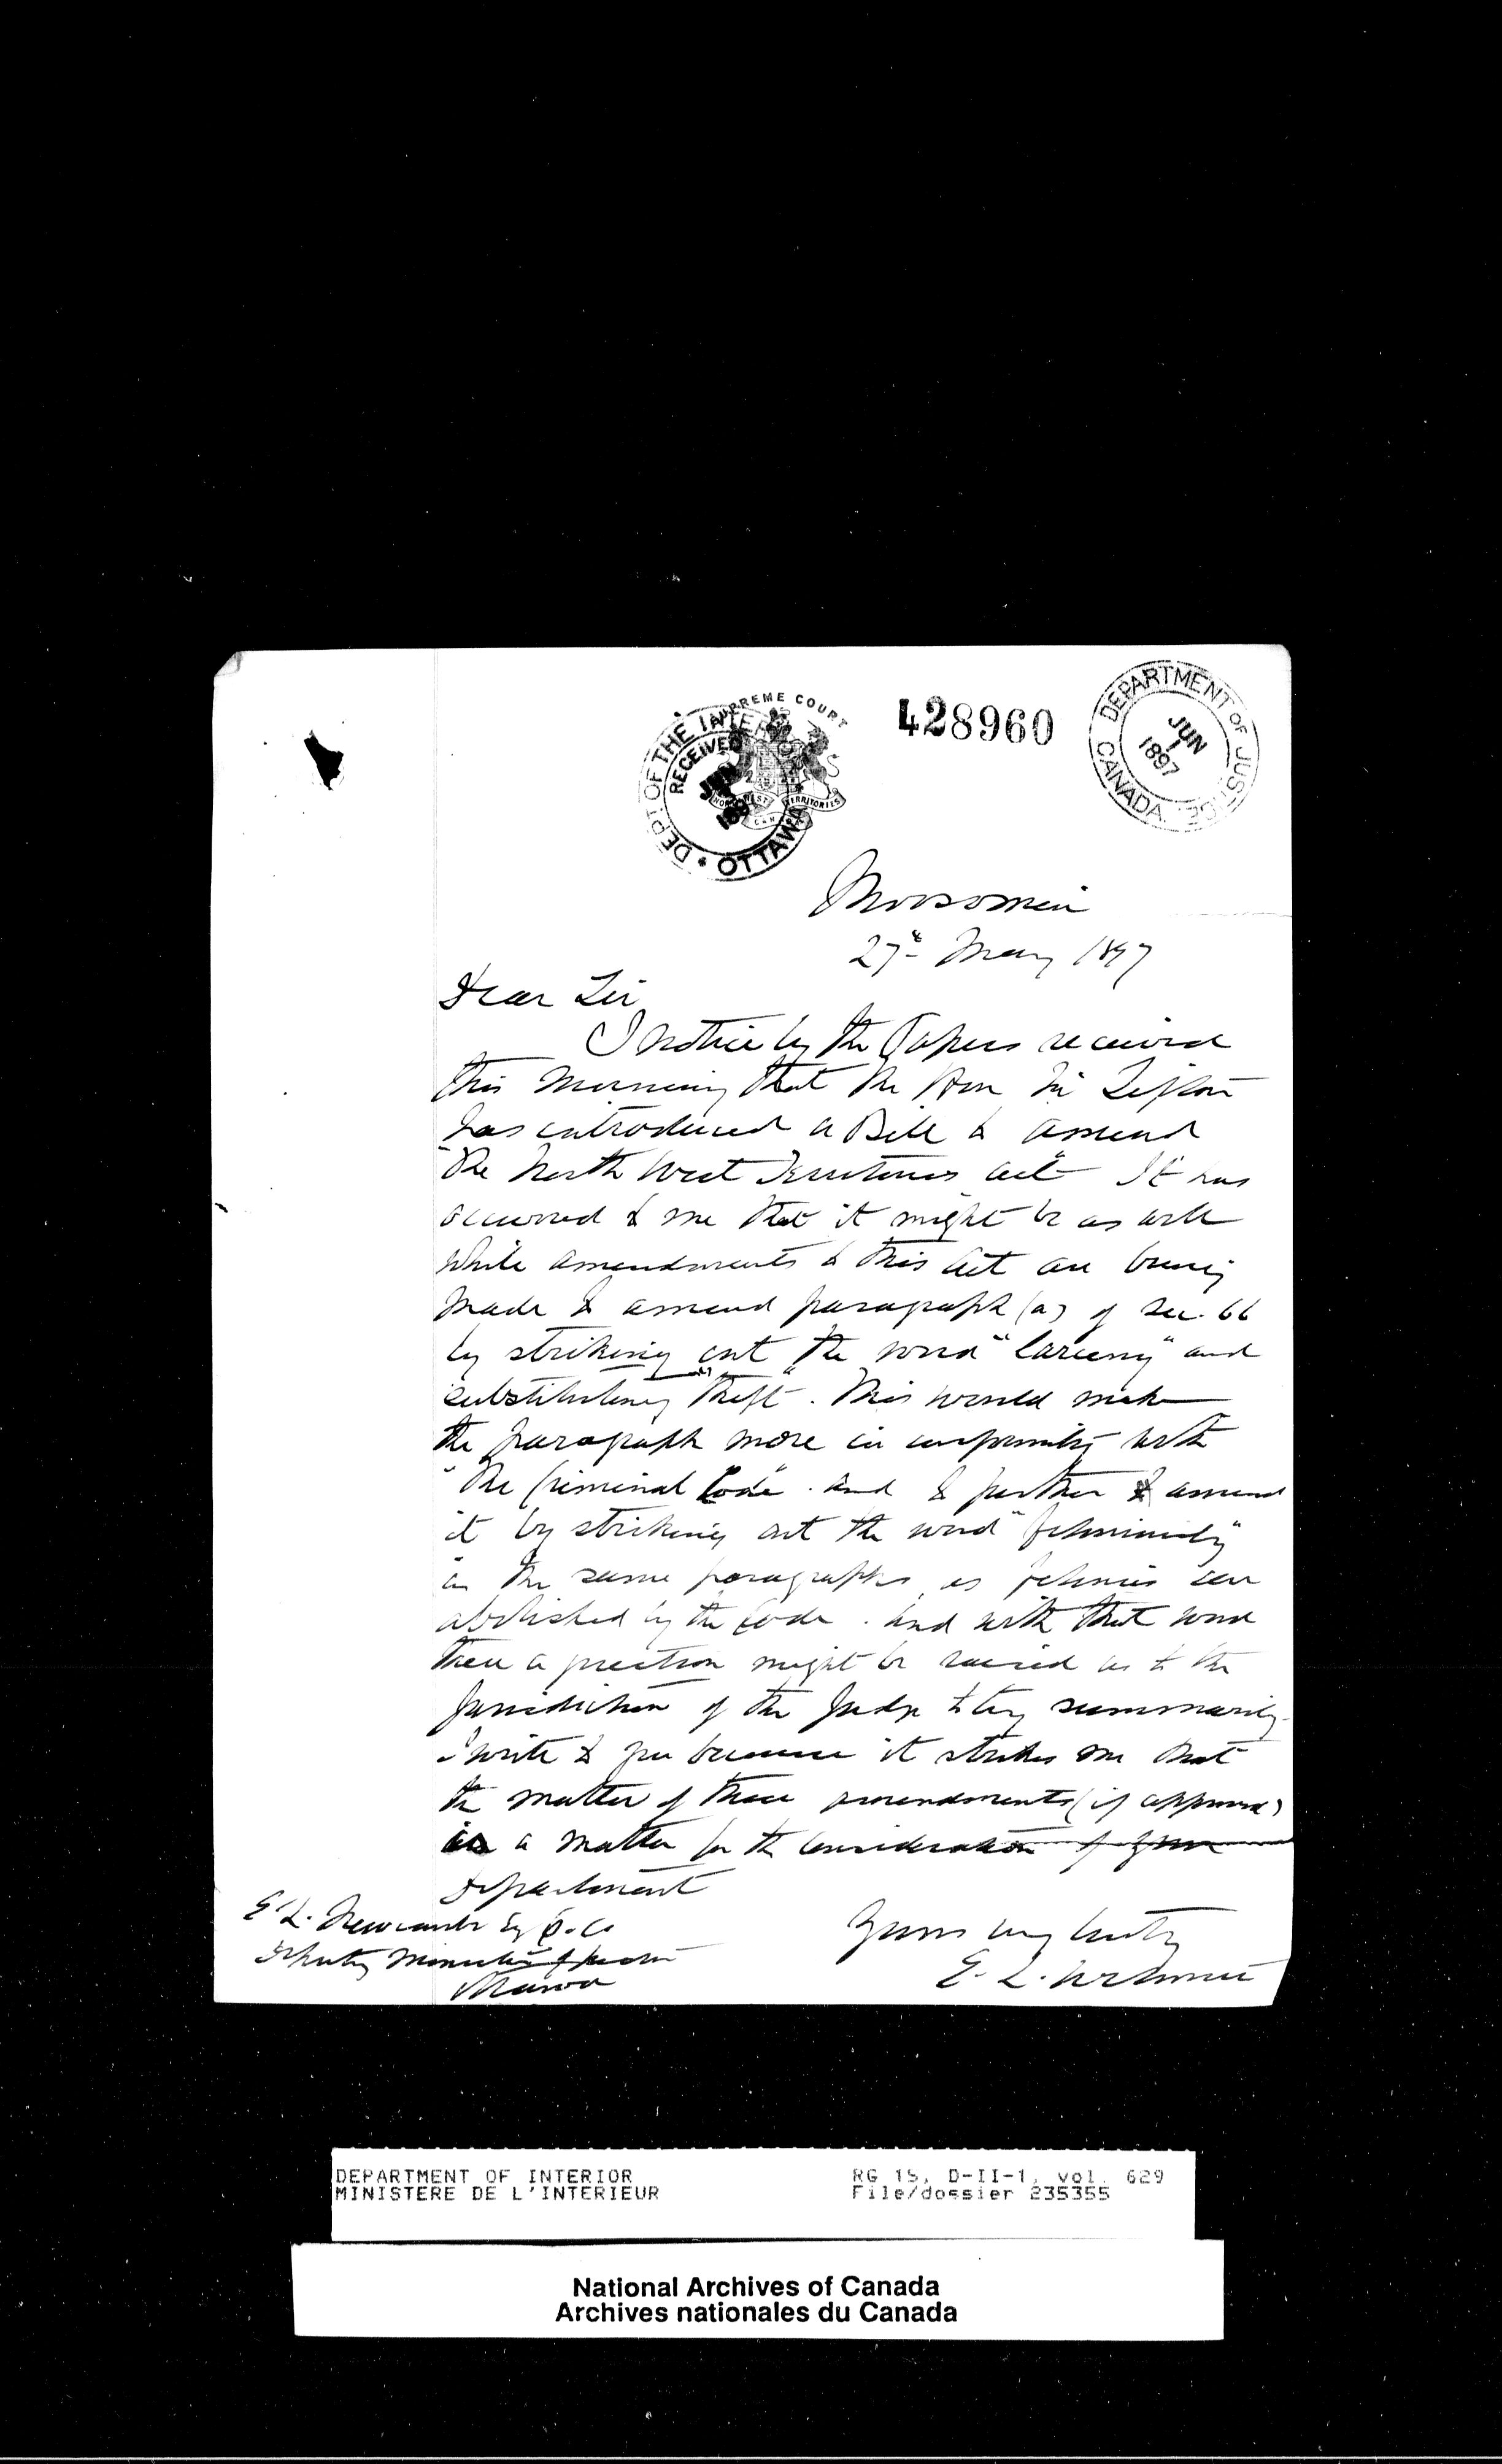 SUPREME COURT
NORTH WEST TERRITORIES
DEPT. OF THE INTERIOR
RECEIVED
OTTAWA
428960
DEPARTMENT OF JUSTICE
JUN
1
1897
CANADA
Moosomin
27th May 1897
Dear Sir
I notice by the Papers received
this morning that the Hon Mr Sifton
has introduced a Bill to amend
"The North West Territories Act" It has
occurred to me that it might be as well
while amendments to this Act are being
made to amend paragraph (a) of Sec. 66
by striking out the word "larceny" and
substituting "theft". This would make
the paragraph more in conformity with
"The Criminal Code". And to further amend
it by striking out the word "feloniously"
in the same paragraph as felonies are
abolished by the Code. And with that word
there a question might be raised as to the
Jurisdiction of the Judge to try summarily
I write to you because it strikes me that
the matter of these amendments (if approved)
is a matter for the consideration of your
Department
Yours very truly
E. L. Wetmore
E L. Newcombe Esq Q.C.
Deputy Minister of Justice
Ottawa
DEPARTMENT OF INTERIOR
MINISTERE DE L'INTERIEUR
RG 15, D-II-1, vol. 629
File/dossier 235355
National Archives of Canada
Archives nationales du Canada